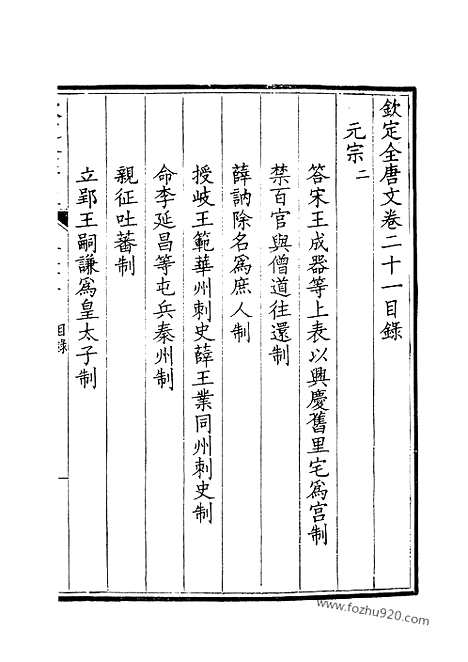 欽定全唐文卷二十一目錄
元宗二
答宋王成器等上表以興慶舊里宅爲宮制
禁百官與僧道往還制
薛訥除名爲庶人制
授岐王範華州刺史薛王業同州刺史制
命李延昌等屯兵秦州制
親征吐蕃制
立郢王嗣謙爲皇太子制
目錄
一
www.fozhu920.com